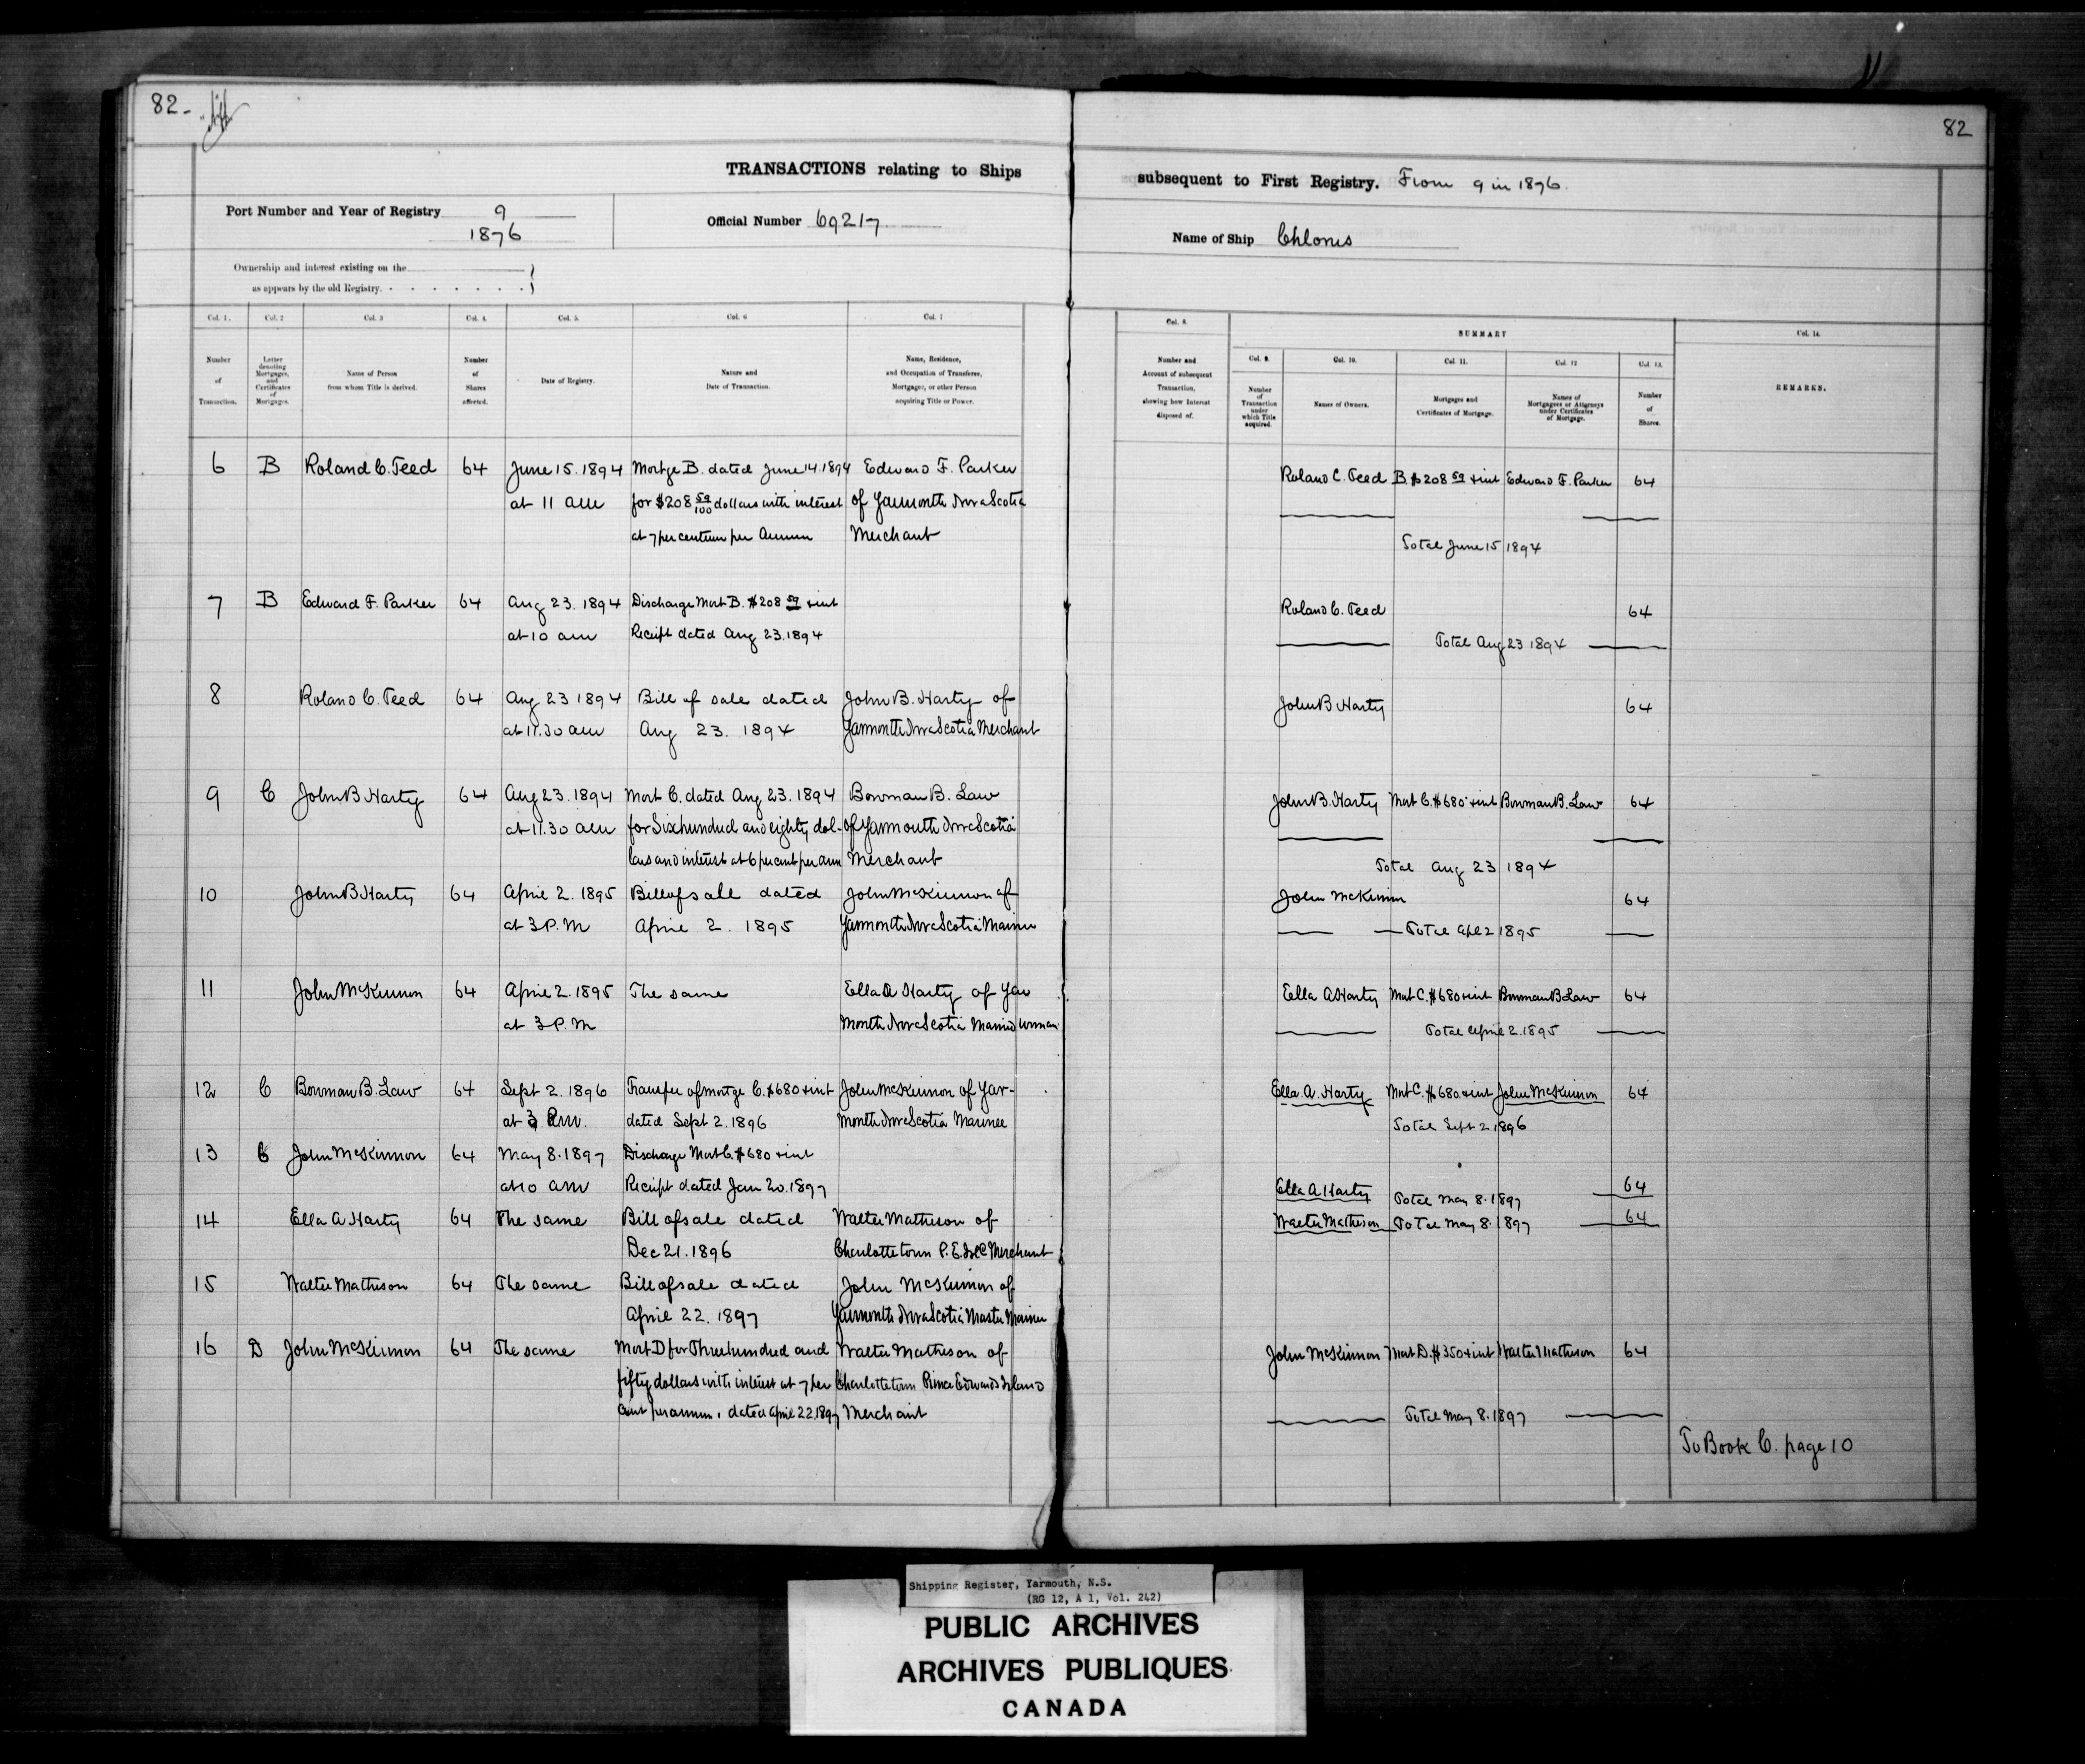 82-
82
TRANSACTIONS relating to Ships
subsequent to First Registry. From 9 in 1876.
Port Number and Year of Registry 9
1876
Official Number 69217
Name of Ship Chloris
Ownership and interest existing on the
as appears by the old Registry.
Col. 1. Col. 2 Col. 3 Col. 4. Col. 5. Col. 6 Col. 7
Number of Transaction.
Letter denoting Mortgages, and Certificates of Mortgages.
Name of Person from whom Title is derived.
Number of Shares affected.
Date of Registry.
Nature and Date of Transaction.
Name, Residence, and Occupation of Transferee, Mortgagee, or other Person acquiring Title or Power.
Col. 8.
Number and Account of subsequent Transaction, showing how Interest disposed of.
SUMMARY
Col. 9. Col. 10. Col. 11. Col. 12 Col. 13.
Number of Transaction under which Title acquired.
Names of Owners.
Mortgages and Certificates of Mortgage.
Names of Mortgagees or Attorneys under Certificates of Mortgage.
Number of Shares.
Col. 14.
REMARKS.
6 B Roland C. Teed 64 June 15. 1894 Mortge B. dated June 14. 1894 Edward F. Parker
at 11 am for $208 59/100 dollars with interest of Yarmouth Nova Scotia
at 7 per centum per Annum Merchant
Roland C. Teed B. $208 59 + int Edward F. Parker 64
Total June 15 1894
7 B Edward F. Parker 64 Aug 23. 1894 Discharge Mort B. $208 59 + int
at 10 am Receipt dated Aug 23. 1894
Roland C. Teed 64
Total Aug 23 1894
8 Roland C. Teed 64 Aug 23 1894 Bill of sale dated John B. Harty of
at 11.30 am Aug 23. 1894 Yarmouth Nova Scotia Merchant
John B Harty 64
9 C John B Harty 64 Aug 23. 1894 Mort C. dated Aug 23. 1894 Bowman B. Law
at 11.30 am for Six hundred and eighty dol- of Yarmouth Nova Scotia
lars and interest at 6 per cent per ann Merchant
John B. Harty Mort C. $680 + int Bowman B. Law 64
Total Aug 23 1894
10 John B Harty 64 April 2. 1895 Bill of sale dated John McKinnon of
at 3 P.M April 2. 1895 Yarmouth Nova Scotia Mariner
John McKinnon 64
Total Apl 2 1895
11 John McKinnon 64 April 2. 1895 The same Ella A Harty of Yar
at 3 P.M mouth Nova Scotia Married woman
Ella A Harty Mort C. $680 + int Bowman B Law 64
Total April 2. 1895
12 C Bowman B. Law 64 Sept 2. 1896 Transfer of mortge C. $680 + int John McKinnon of Yar-
at 3 P.m. dated Sept 2. 1896 mouth Nova Scotia Mariner
Ella. A. Harty Mort C. $680. + int John McKinnon 64
Total Sept 2 1896
13 C John McKinnon 64 May 8. 1897 Discharge Mort C. $680 + int
at 10 am Receipt dated Jan 20. 1897
Ella A Harty Total May 8. 1897 64
14 Ella A Harty 64 The same Bill of sale dated Walter Matheson of
Dec 21. 1896 Charlottetown P. E. Isld Merchant
Walter Matheson Total May 8. 1897 64
15 Walter Matheson 64 The same Bill of sale dated John McKinnon of
April 22. 1897 Yarmouth Nova Scotia Master Mariner
16 D John McKinnon 64 The same Mort D for Three hundred and Walter Matheson of
fifty dollars with interest at 7 per Charlottetown Prince Edwards Island
Cent per annum, dated April 22. 1897 Merchant
John McKinnon Mort D. $350 + int Walter Matheson 64
Total May 8. 1897
To Book C. page 10
Shipping Register, Yarmouth, N.S.
(RG 12, A 1, Vol. 242)
PUBLIC ARCHIVES
ARCHIVES PUBLIQUES
CANADA